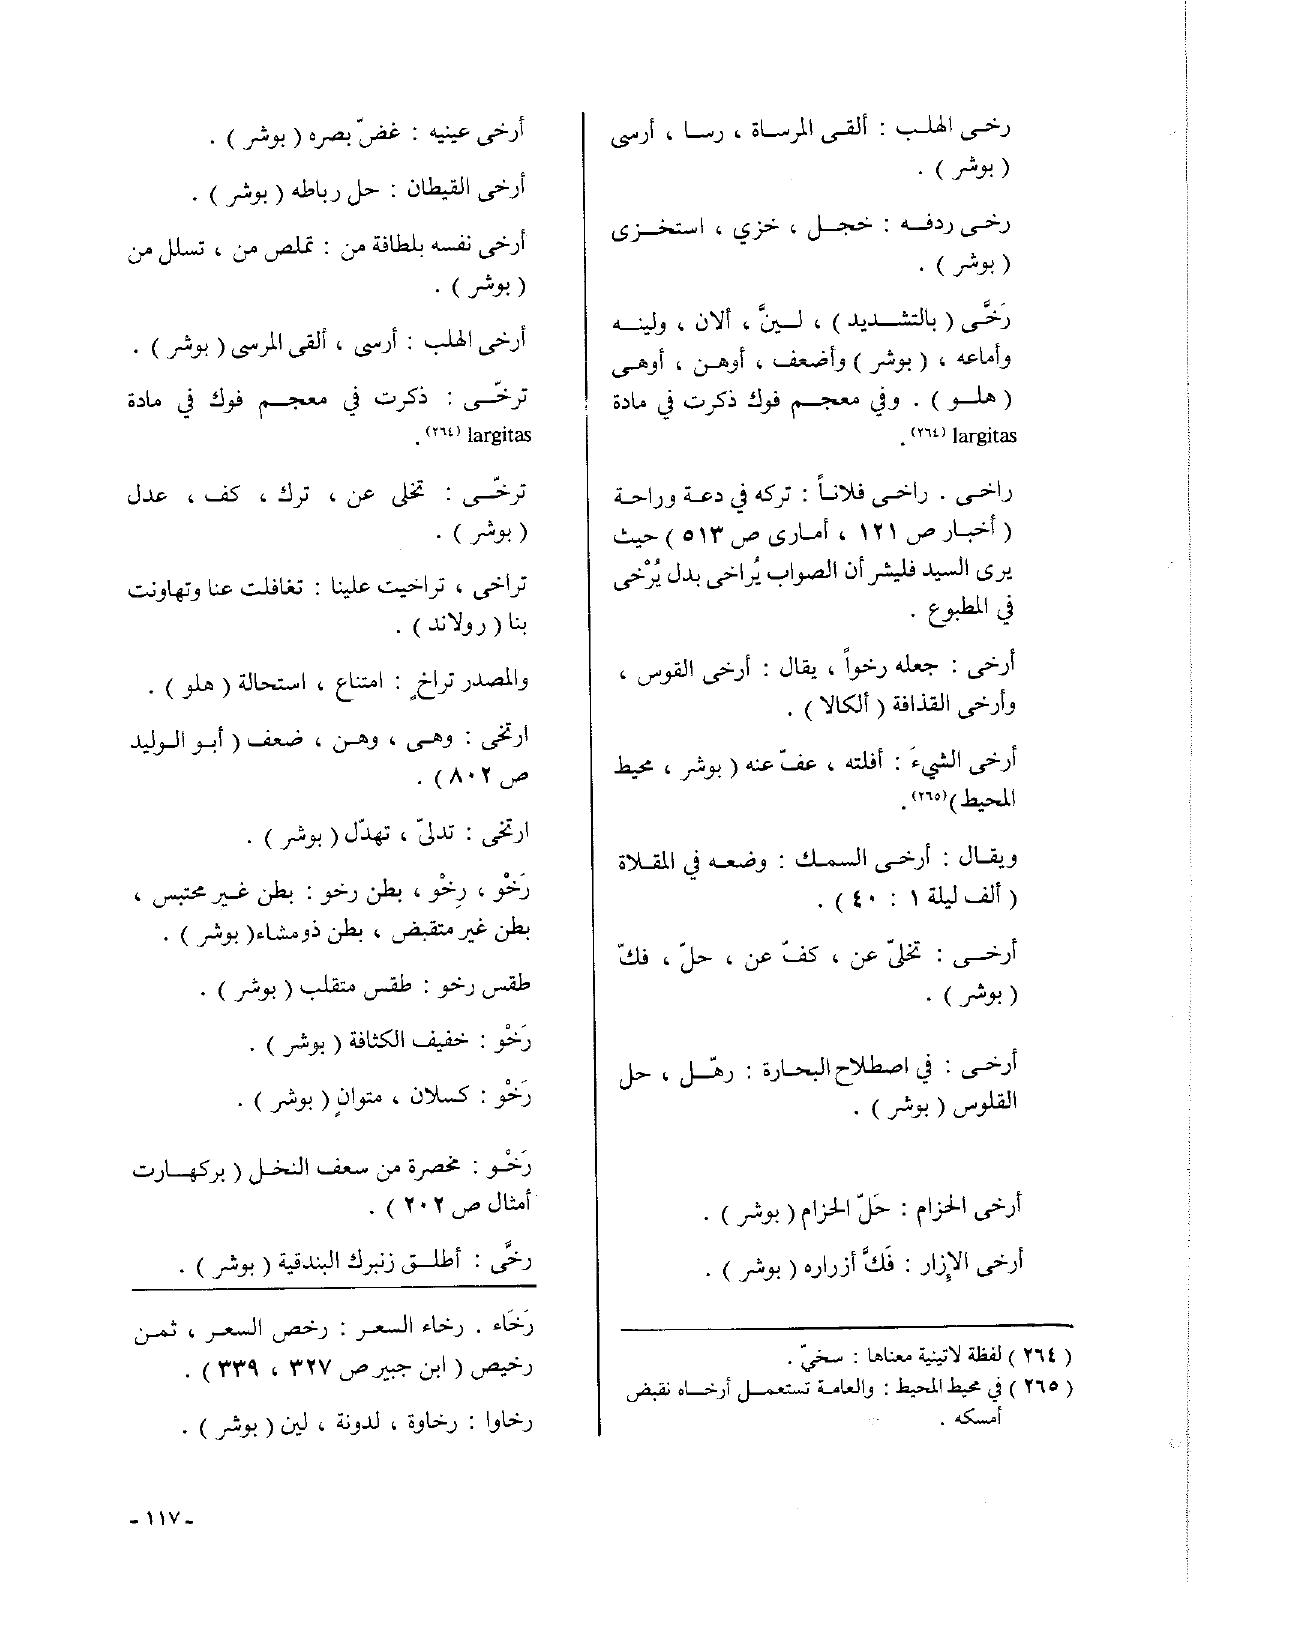 رخـى الهلـب : ألقـى المرسـاة ، رسـا ، أرسى
( بوشر ) .
رخـى ردفـه : خجـل ، خزي ، استخـزى
( بوشر ) .
رَخَّى ( بالتشـديد ) ، لـينَّ ، ألان ، ولينـه
وأماعه ، ( بوشر ) وأضعف ، أوهـن ، أوهـى
( هلـو ) . وفي معجـم فوك ذكرت في مادة
largitas (٢٦٤) .
راخـى . راخـى فلانـاً : تركه في دعـة وراحـة
( أخبـار ص ١٢١ ، أمـارى ص ٥١٣ ) حيث
يرى السيد فليشر أن الصواب يُراخى بدل يُرْخى
في المطبوع .
أرخى : جعله رخواً ، يقال : أرخى القوس ،
وأرخى القذافة ( ألكالا ) .
أرخى الشيءَ : أفلته ، عفّ عنه ( بوشر ، محيط
المحيط )(٢٦٥) .
ويقـال : أرخـى السمـك : وضعـه في المقـلاة
( ألف ليلة ١ : ٤٠ ) .
أرخـى : تخلىّ عن ، كفّ عن ، حلّ ، فكّ
( بوشر ) .
أرخـى : في اصطلاح البحـارة : رهّـل ، حل
القلوس ( بوشر ) .
أرخى الحزام : حَلّ الحزام ( بوشر ) .
أرخى الإزار : فَكَّ أزراره ( بوشر ) .
( ٢٦٤ ) لفظة لاتينية معناها : سخيّ .
( ٢٦٥ ) في محيط المحيط : والعامة تستعمـل أرخـاه نقيض
أمسكه .
أرخى عينيه : غضّ بصره ( بوشر ) .
أرخى القيطان : حل رباطه ( بوشر ) .
أرخى نفسه بلطافة من : تملص من ، تسلل من
( بوشر ) .
أرخى الهلب : أرسى ، ألقى المرسى ( بوشر ) .
ترخّـى : ذكرت في معجـم فوك في مادة
largitas (٢٦٤) .
ترخّـى : تخلى عن ، ترك ، كف ، عدل
( بوشر ) .
تراخى ، تراخيت علينا : تغافلت عنا وتهاونت
بنا ( رولاند ) .
والمصدر تراخٍ : امتناع ، استحالة ( هلو ) .
ارتخى : وهـى ، وهـن ، ضعف ( أبـو الـوليد
ص ٨٠٢ ) .
ارتخى : تدلىّ ، تهدّل ( بوشر ) .
رَخْو ، رِخْو ، بطن رخو : بطن غير محتبس ،
بطن غير متقبض ، بطن ذو مشاء ( بوشر ) .
طقس رخو : طقس متقلب ( بوشر ) .
رَخْو : خفيف الكثافة ( بوشر ) .
رَخْو : كسلان ، متوانٍ ( بوشر ) .
رَخْـو : مخصرة من سعف النخـل ( بركهـارت
أمثال ص ٢٠٢ ) .
رخَّى : أطلـق زنبرك البندقية ( بوشر ) .
رَخَاء . رخاء السعـر : رخص السعـر ، ثمـن
رخيص ( ابن جبير ص ٣٢٧ ، ٣٣٩ ) .
رخاوا : رخاوة ، لدونة ، لين ( بوشر ) .
- ١١٧ -